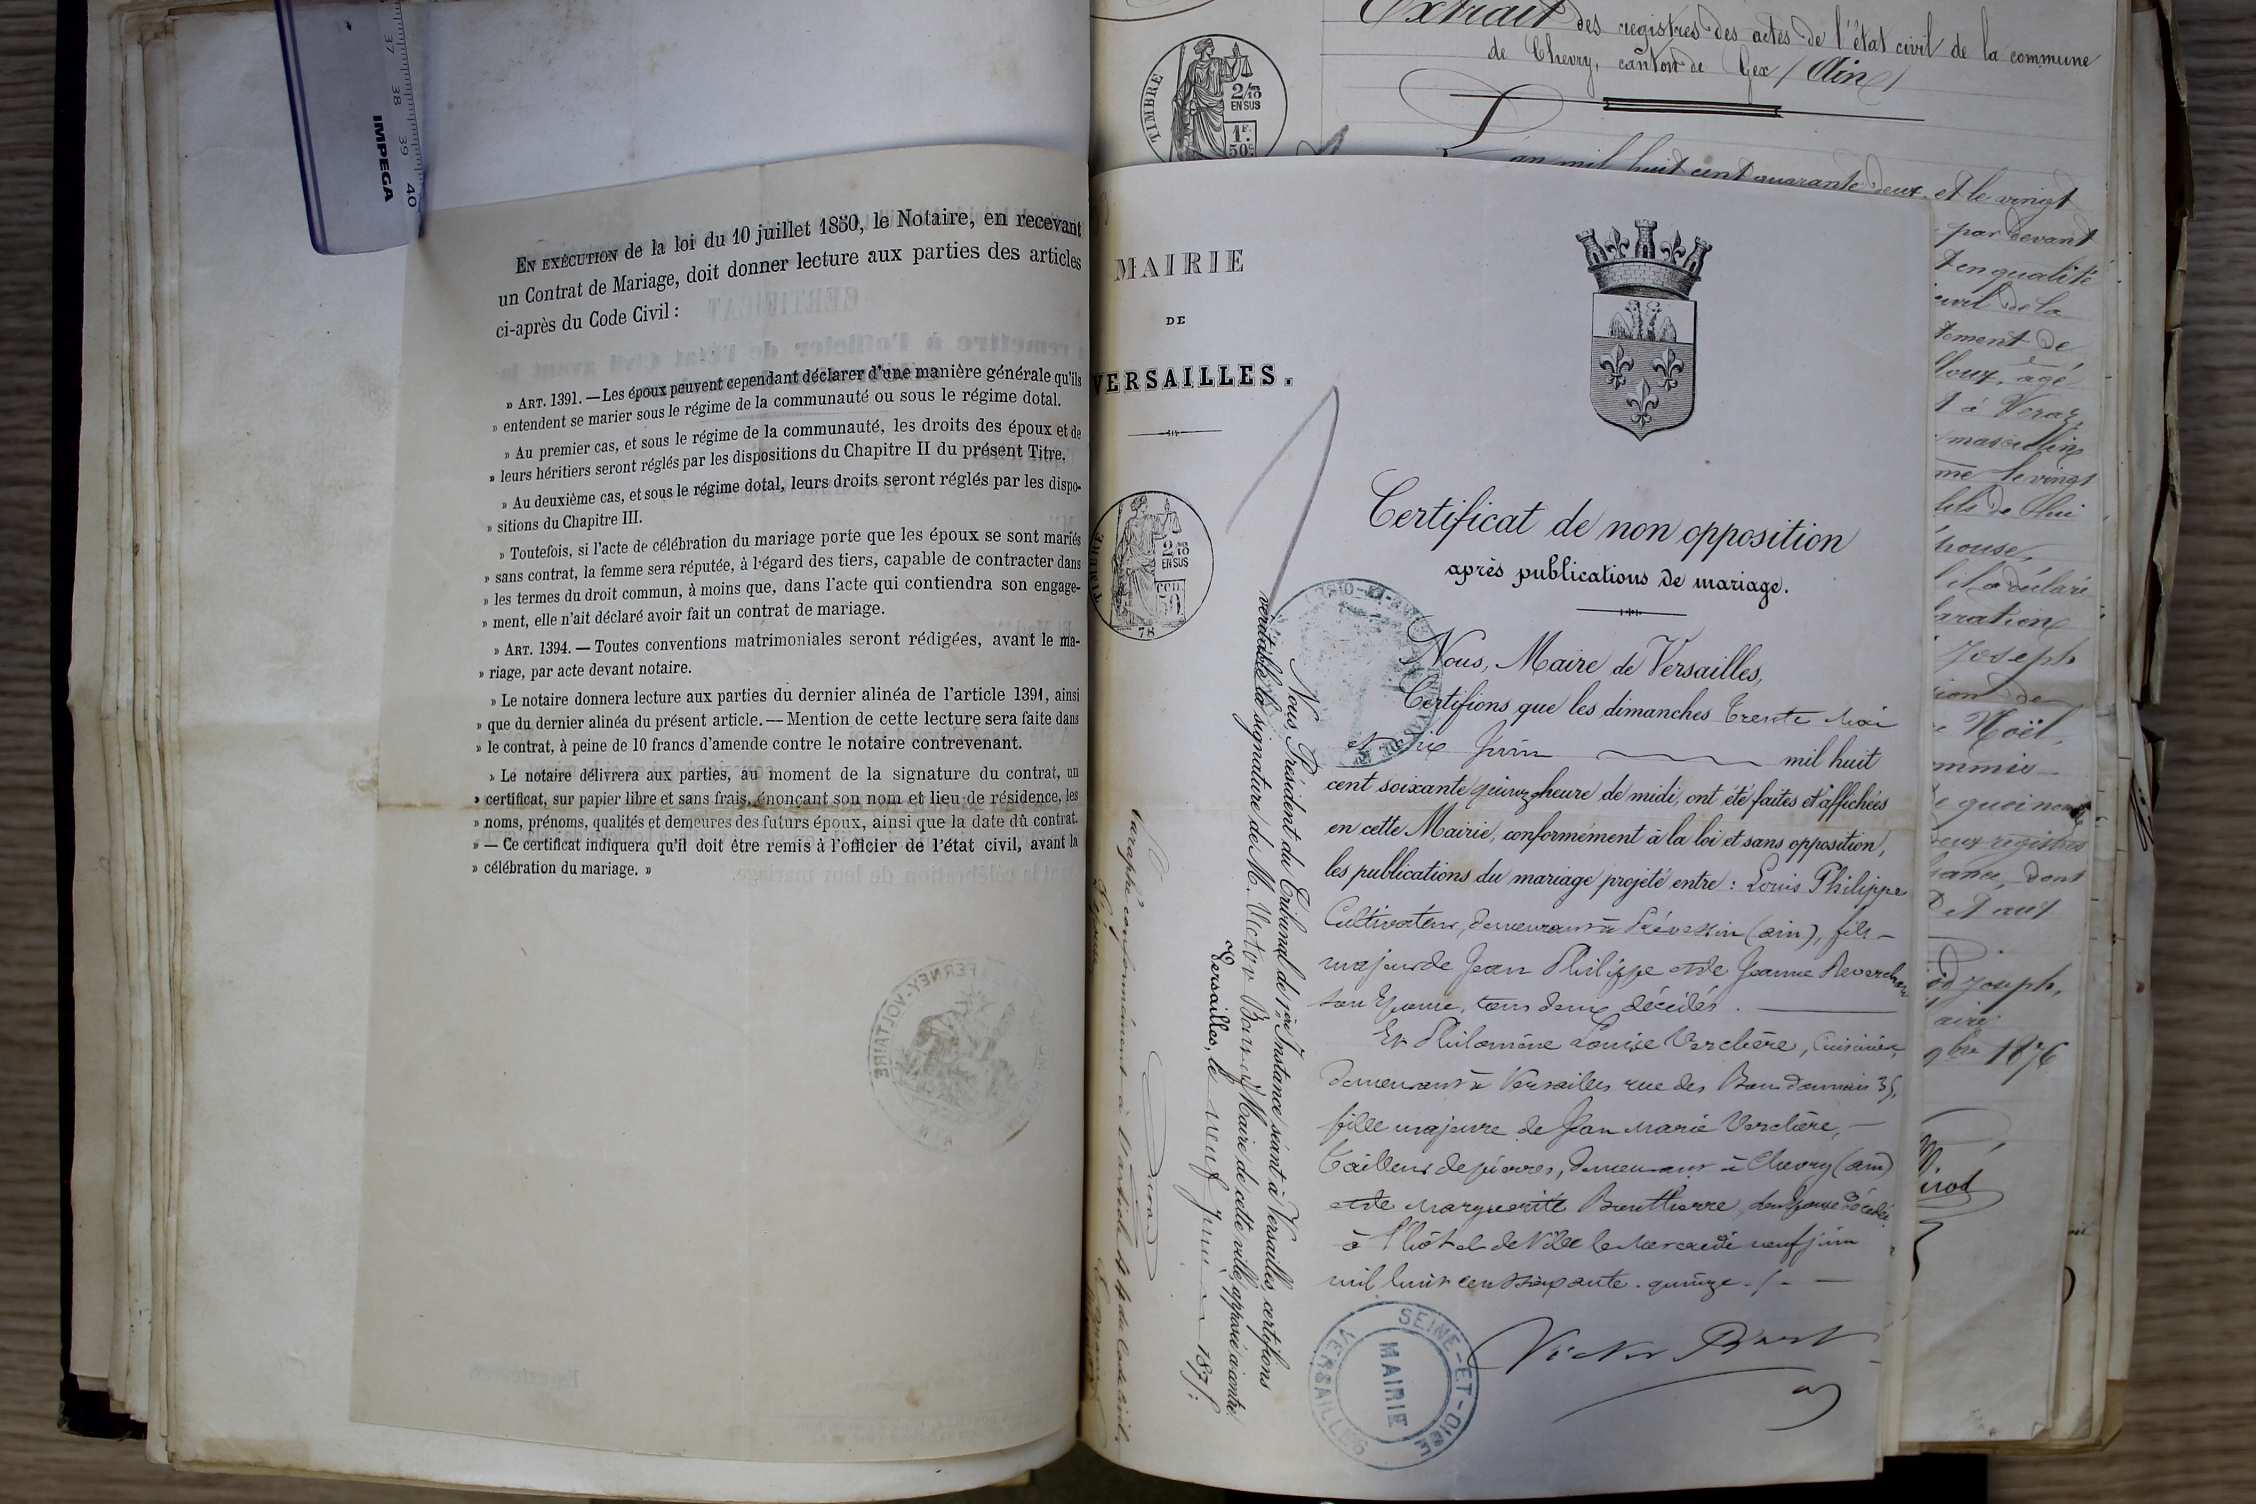 37
38
39
40
IMPEGA
EN EXÉCUTION de la loi du 10 juillet 1850, le Notaire, en recevant
un Contrat de Mariage, doit donner lecture aux parties des articles
ci-après du Code Civil :
» ART. 1391. — Les époux peuvent cependant déclarer d'une manière générale qu'ils
» entendent se marier sous le régime de la communauté ou sous le régime dotal.
» Au premier cas, et sous le régime de la communauté, les droits des époux et de
» leurs héritiers seront réglés par les dispositions du Chapitre II du présent Titre.
» Au deuxième cas, et sous le régime dotal, leurs droits seront réglés par les dispo-
» sitions du Chapitre III.
» Toutefois, si l'acte de célébration du mariage porte que les époux se sont mariés
» sans contrat, la femme sera réputée, à l'égard des tiers, capable de contracter dans
» les termes du droit commun, à moins que, dans l'acte qui contiendra son engage-
» ment, elle n'ait déclaré avoir fait un contrat de mariage.
» ART. 1394. — Toutes conventions matrimoniales seront rédigées, avant le ma-
» riage, par acte devant notaire.
» Le notaire donnera lecture aux parties du dernier alinéa de l'article 1391, ainsi
» que du dernier alinéa du présent article. — Mention de cette lecture sera faite dans
» le contrat, à peine de 10 francs d'amende contre le notaire contrevenant.
» Le notaire délivrera aux parties, au moment de la signature du contrat, un
» certificat, sur papier libre et sans frais, énonçant son nom et lieu de résidence, les
» noms, prénoms, qualités et demeures des futurs époux, ainsi que la date du contrat.
» — Ce certificat indiquera qu'il doit être remis à l'officier de l'état civil, avant la
» célébration du mariage. »
FERNEY-VOLTAIRE
Extrait des registres des actes de l'état civil de la commune
de Chevry, canton de Gex (Ain)
TIMBRE
2/10
EN SUS
1F.
50c
L'an mil huit cent quarante deux, et le vingt
par devant
en qualité
civil de la
tement de
âgé
à Veraz
masculin
le vingt
fils de lui
épouse,
et a déclaré
Joseph
Noël,
registres
dont
Joseph,
9bre 1876
MAIRIE
DE
VERSAILLES.
TIMBRE
2/10
EN SUS
CEN.
50
78
Certificat de non opposition
après publications de mariage.
Nous, Maire de Versailles,
Certifions que les dimanches trente Mai
et six Juin mil huit
cent soixante quinze heure de midi, ont été faites et affichées
en cette Mairie, conformément à la loi et sans opposition,
les publications du mariage projeté entre : Louis Philippe
Cultivateur, demeurant à Prévessin (ain), fils
majeur de Jean Philippe et de Jeanne Reverchon
son Epouse, tous deux décédés.
Et Philomène Louise Verchère, Cuisinière,
demeurant à Versailles rue des Bourdonnais 35,
fille majeure de Jean Marie Verchère,
tailleur de pierres, demeurant à Chevry (ain)
et de Marguerite son Epouse décédée
à l'hôtel de Ville le Mercredi neuf juin
mil huit cent soixante-quinze.
Victor Bart
SEINE-ET-OISE
MAIRIE
VERSAILLES
Nous Président du Tribunal de 1ère Instance séant à Versailles, certifions
véritable la signature de M. Victor Bart Maire de cette ville, apposée ci-contre.
Versailles, le neuf Juin 1875.
Paraphé conformément à l'article 44 du Code Civil.